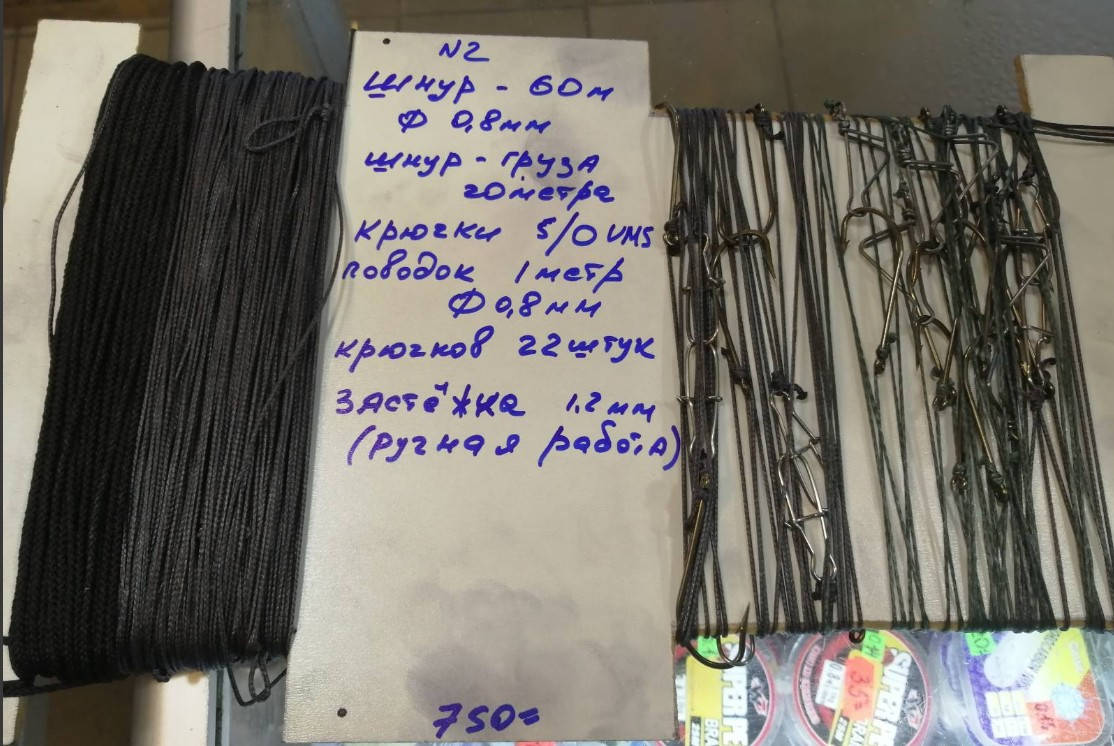 N2
шнур - 60м
Ф 0,8мм
шнур - груза
20метра
крючки 5/0 VMS
поводок 1метр
Ф 0,8мм
крючков 22штук
застёжка 1.2мм
(ручная работа)
750=
SUPER PE
BRA
SUPER PE
BRA
35=